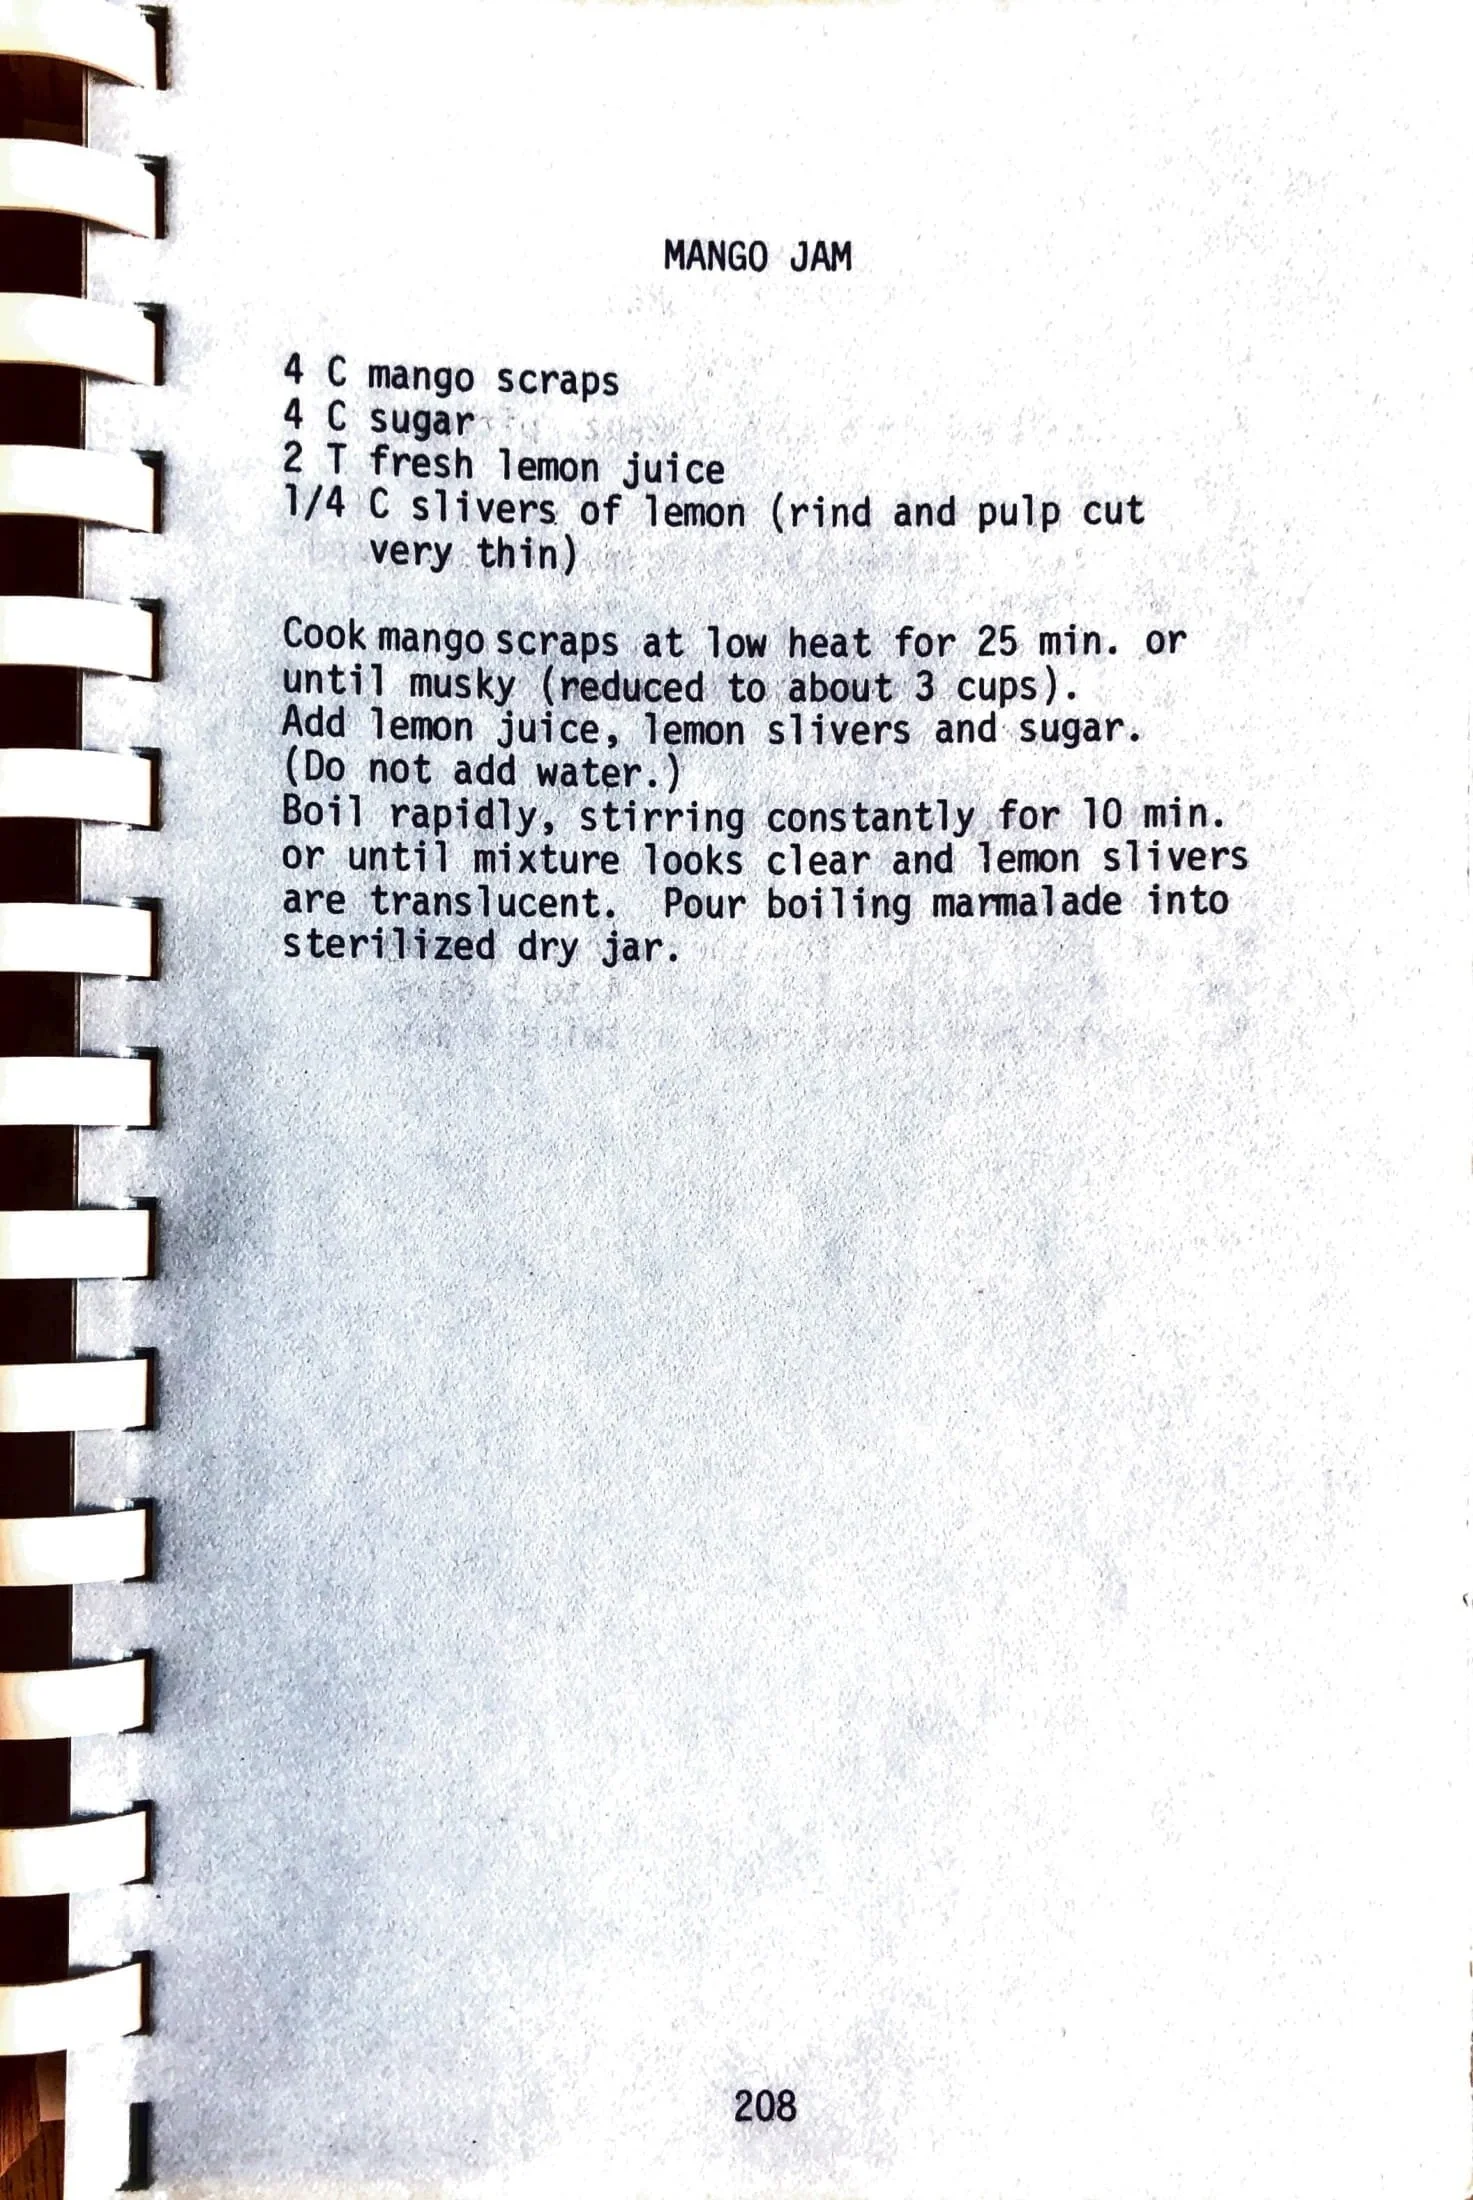 MANGO JAM
4 C mango scraps
4 C sugar
2 T fresh lemon juice
1/4 C slivers of lemon (rind and pulp cut
very thin)
Cook mango scraps at low heat for 25 min. or
until musky (reduced to about 3 cups).
Add lemon juice, lemon slivers and sugar.
(Do not add water.)
Boil rapidly, stirring constantly for 10 min.
or until mixture looks clear and lemon slivers
are translucent.  Pour boiling marmalade into
sterilized dry jar.
208